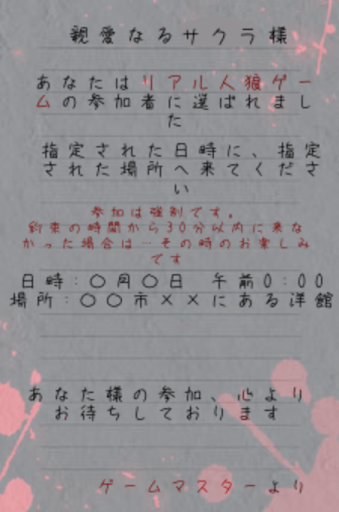 親愛なるサクラ様
あなたはリアル人狼ゲー
ムの参加者に選ばれまし
た
指定された日時に、指定
された場所へ来てくださ
い
参加は強制です。
約束の時間から30分以内に来な
かった場合は…その時のお楽しみ
です
日時：〇月〇日　午前0：00
場所：〇〇市××にある洋館
あなた様の参加、心より
お待ちしております
ゲームマスターより